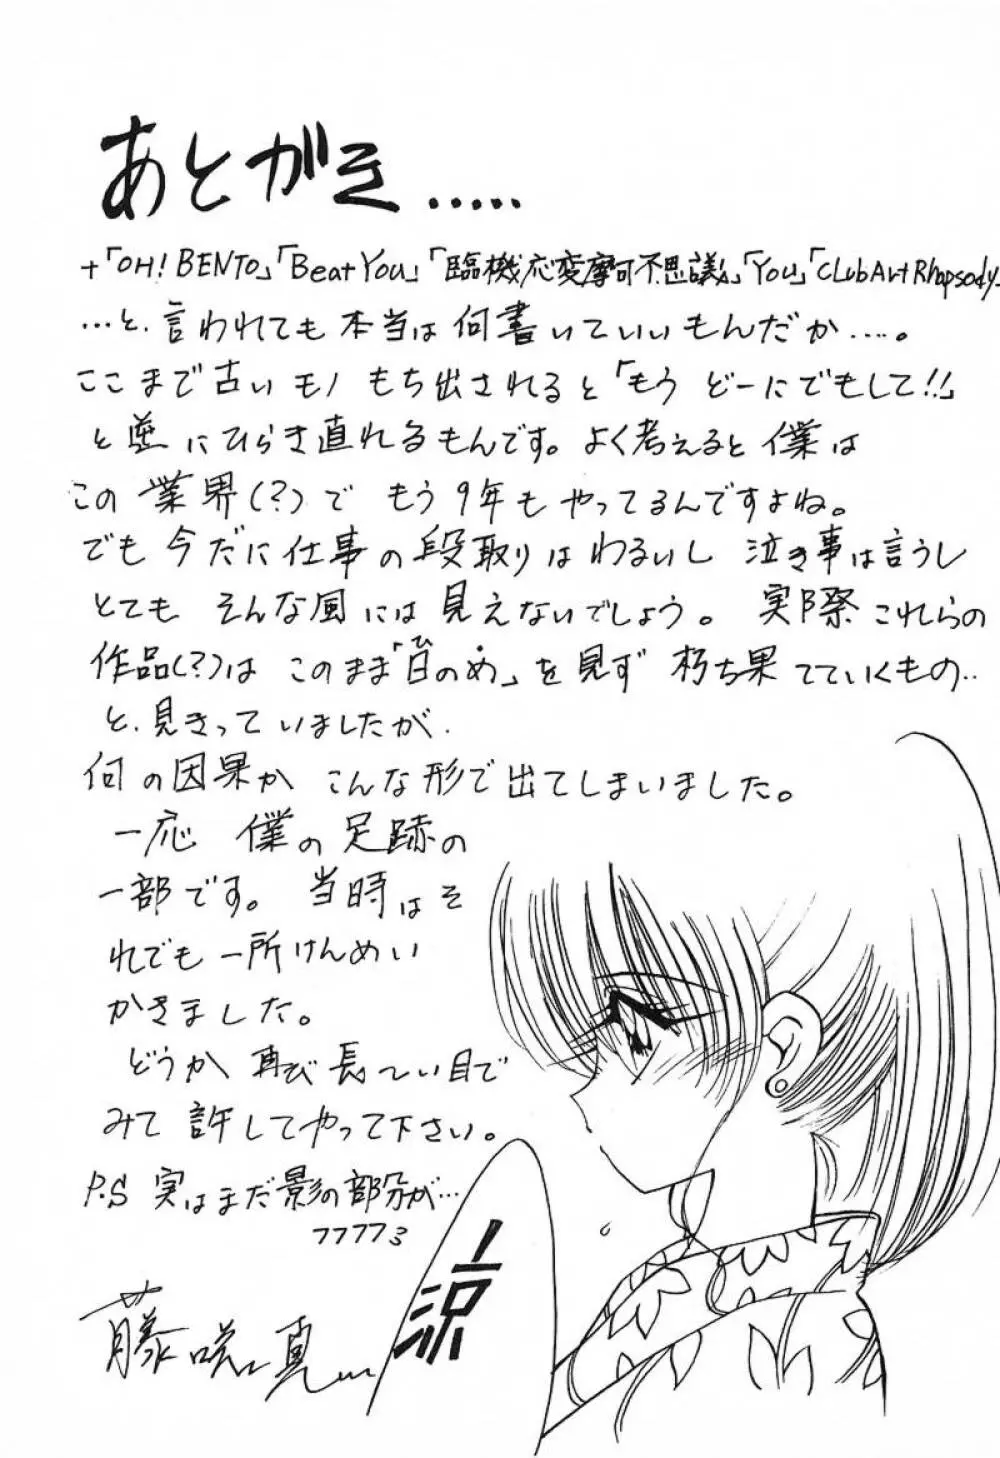 あとがき.....
+「OH! BENTO」「Beat You」「臨機応変摩可不思議」「You」「CLub Art Rhapsody」
…と、言われても本当は何書いていいもんだか….。
ここまで古いモノもち出されると「もうどーにでもして!!」
と逆にひらき直れるもんです。よく考えると僕は
この業界(?)でもう9年もやってるんですよね。
でも今だに仕事の段取りはわるいし泣き事は言うし
とてもそんな風には見えないでしょう。実際これらの
作品(?)はこのまま「日のめ」を見ず朽ち果てていくもの..
ひ
と、見きっていましたが、
何の因果かこんな形で出てしまいました。
一応僕の足跡の
一部です。当時はそ
れでも一所けんめい
かきました。
どうか再び長〜い目で
みて許してやって下さい。
P.S 実はまだ影の部分が…
フフフフ3
藤咲真
涼